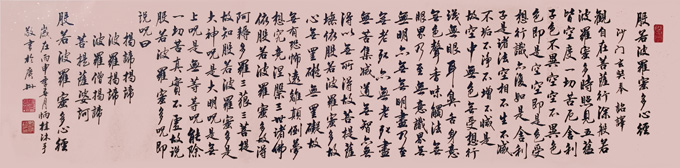 般若波羅蜜多心經
沙門玄奘奉 詔譯
觀自在菩薩行深般若
波羅蜜多時照見五蘊
皆空度一切苦厄舍利
子色不異空空不異色
色即是空空即是色受
想行識亦復如是舍利
子是諸法空相不生不滅
不垢不淨不增不減是
故空中無色無受想行
識無眼耳鼻舌身意
無色聲香味觸法無
眼界乃至無意識界
無無明亦無無明盡乃至
無老死亦無老死盡
無苦集滅道無智亦無
得以無所得故菩提薩
埵依般若波羅蜜多故
心無罣礙無罣礙故
無有恐怖遠離顛倒夢
想究竟涅槃三世諸佛
依般若波羅蜜多故得
阿耨多羅三藐三菩提
故知般若波羅蜜多是
大神咒是大明咒是無
上咒是無等等咒能除
一切苦真實不虛故說
般若波羅蜜多咒即
說咒曰
揭諦揭諦
波羅揭諦
波羅僧揭諦
菩提薩婆訶
般若波羅蜜多心經
歲在丙申年月炳桂沐手
敬書於廣州